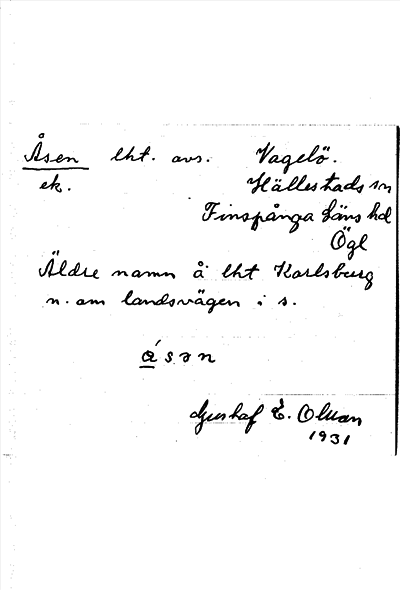 Åsen lht. avs. Vagelö.
ek. Hällestads sn
Finspånga Läns hd
Ögl
Äldre namn å lht Karlsburg
n. om landsvägen i s.
ɑ́sən
Gustaf E. Olsson
1931